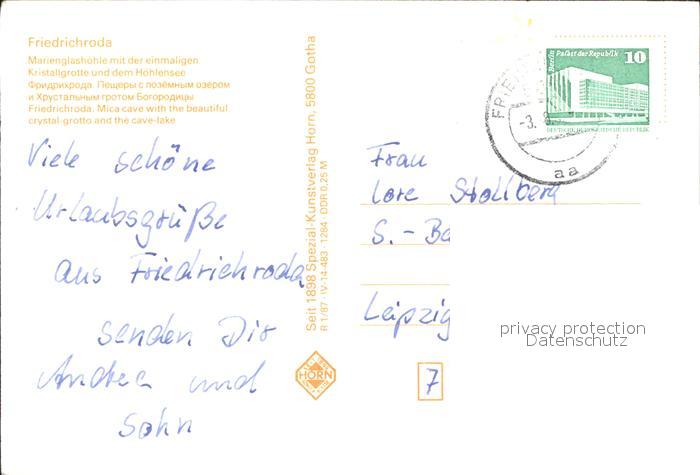 Friedrichroda
Marienglashöhle mit der einmaligen
Kristallgrotte und dem Höhlensee
Фридрихрода. Пещеры с поземным озером
и Хрустальным гротом Богородицы
Friedrichroda. Mica cave with the beautiful
crystal-grotto and the cave-lake
Viele schöne
Urlaubsgrüße
aus Friedrichroda
senden Dir
Andrea und
Sohn
Seit 1898 Spezial-Kunstverlag Horn, 5800 Gotha
R 1/87 · IV-14-483 · 1284 · DDR 0,25 M
HORN
Berlin, Palast der Republik
10
DEUTSCHE DEMOKRATISCHE REPUBLIK
-3. 8.
aa
Frau
Lore Stollberg
S.-Ba
Leipzig
7
privacy protection
Datenschutz